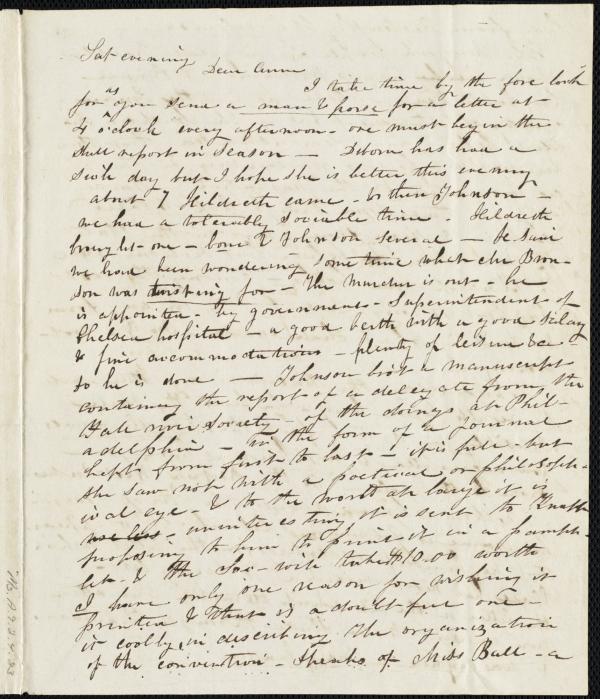 Sat evening
Dear Anne
I take time by the fore lock
for as you send a man & horse for a letter at
4 o'clock every afternoon - one must begin the
Shall report in season - Debora has had a
sick day but I hope she is better this evening
about 7 Hildreth came - & then Johnson -
we had a tolerably sociable time - Hildreth
brought one - bone & Johnson several -
we had been wondering some time what the Bron-
son was twisting for - The murder is out - he
is appointed - by government - Superintendent of
Chelsea hospital - a good berth with a good salary
& fine accommodations - plenty of leisure &c -
so he is done - Johnson bro't a manuscript
containing the report of a delegate from the
Yale society - of the doings at Phil-
adelphia - in the form of a journal
kept from first to last - it is full - but
she saw not with a poetical or philosoph-
ical eye - & to the world at large it is
uninteresting, it is sent to Knapp
proposing to him to print it in a pamph-
let - & the Soc - will take $10.00 worth
I have only one reason for wishing it
printed & that is a doubtful one -
it coolly, in describing the organization
of the convention - speaks of Miss Ball - a